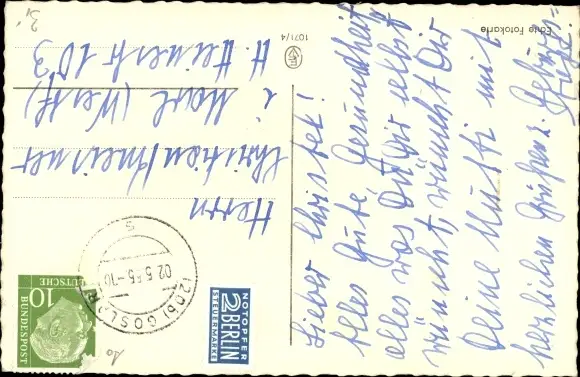 Lieber Christek!
Alles Gute, Gesundheit
alles was Du Dir selbst
wünscht, wünscht Dir
Deine Mutti mit
herzlichen Grüßen
Echte Fotokarte
1071/4
NOTOPFER
2 BERLIN
STEUERMARKE
10
DEUTSCHE
BUNDESPOST
(20b) GOSLAR
02.5.55.-10
S
Herrn
Christian
i Marl (Westf)
103
3,